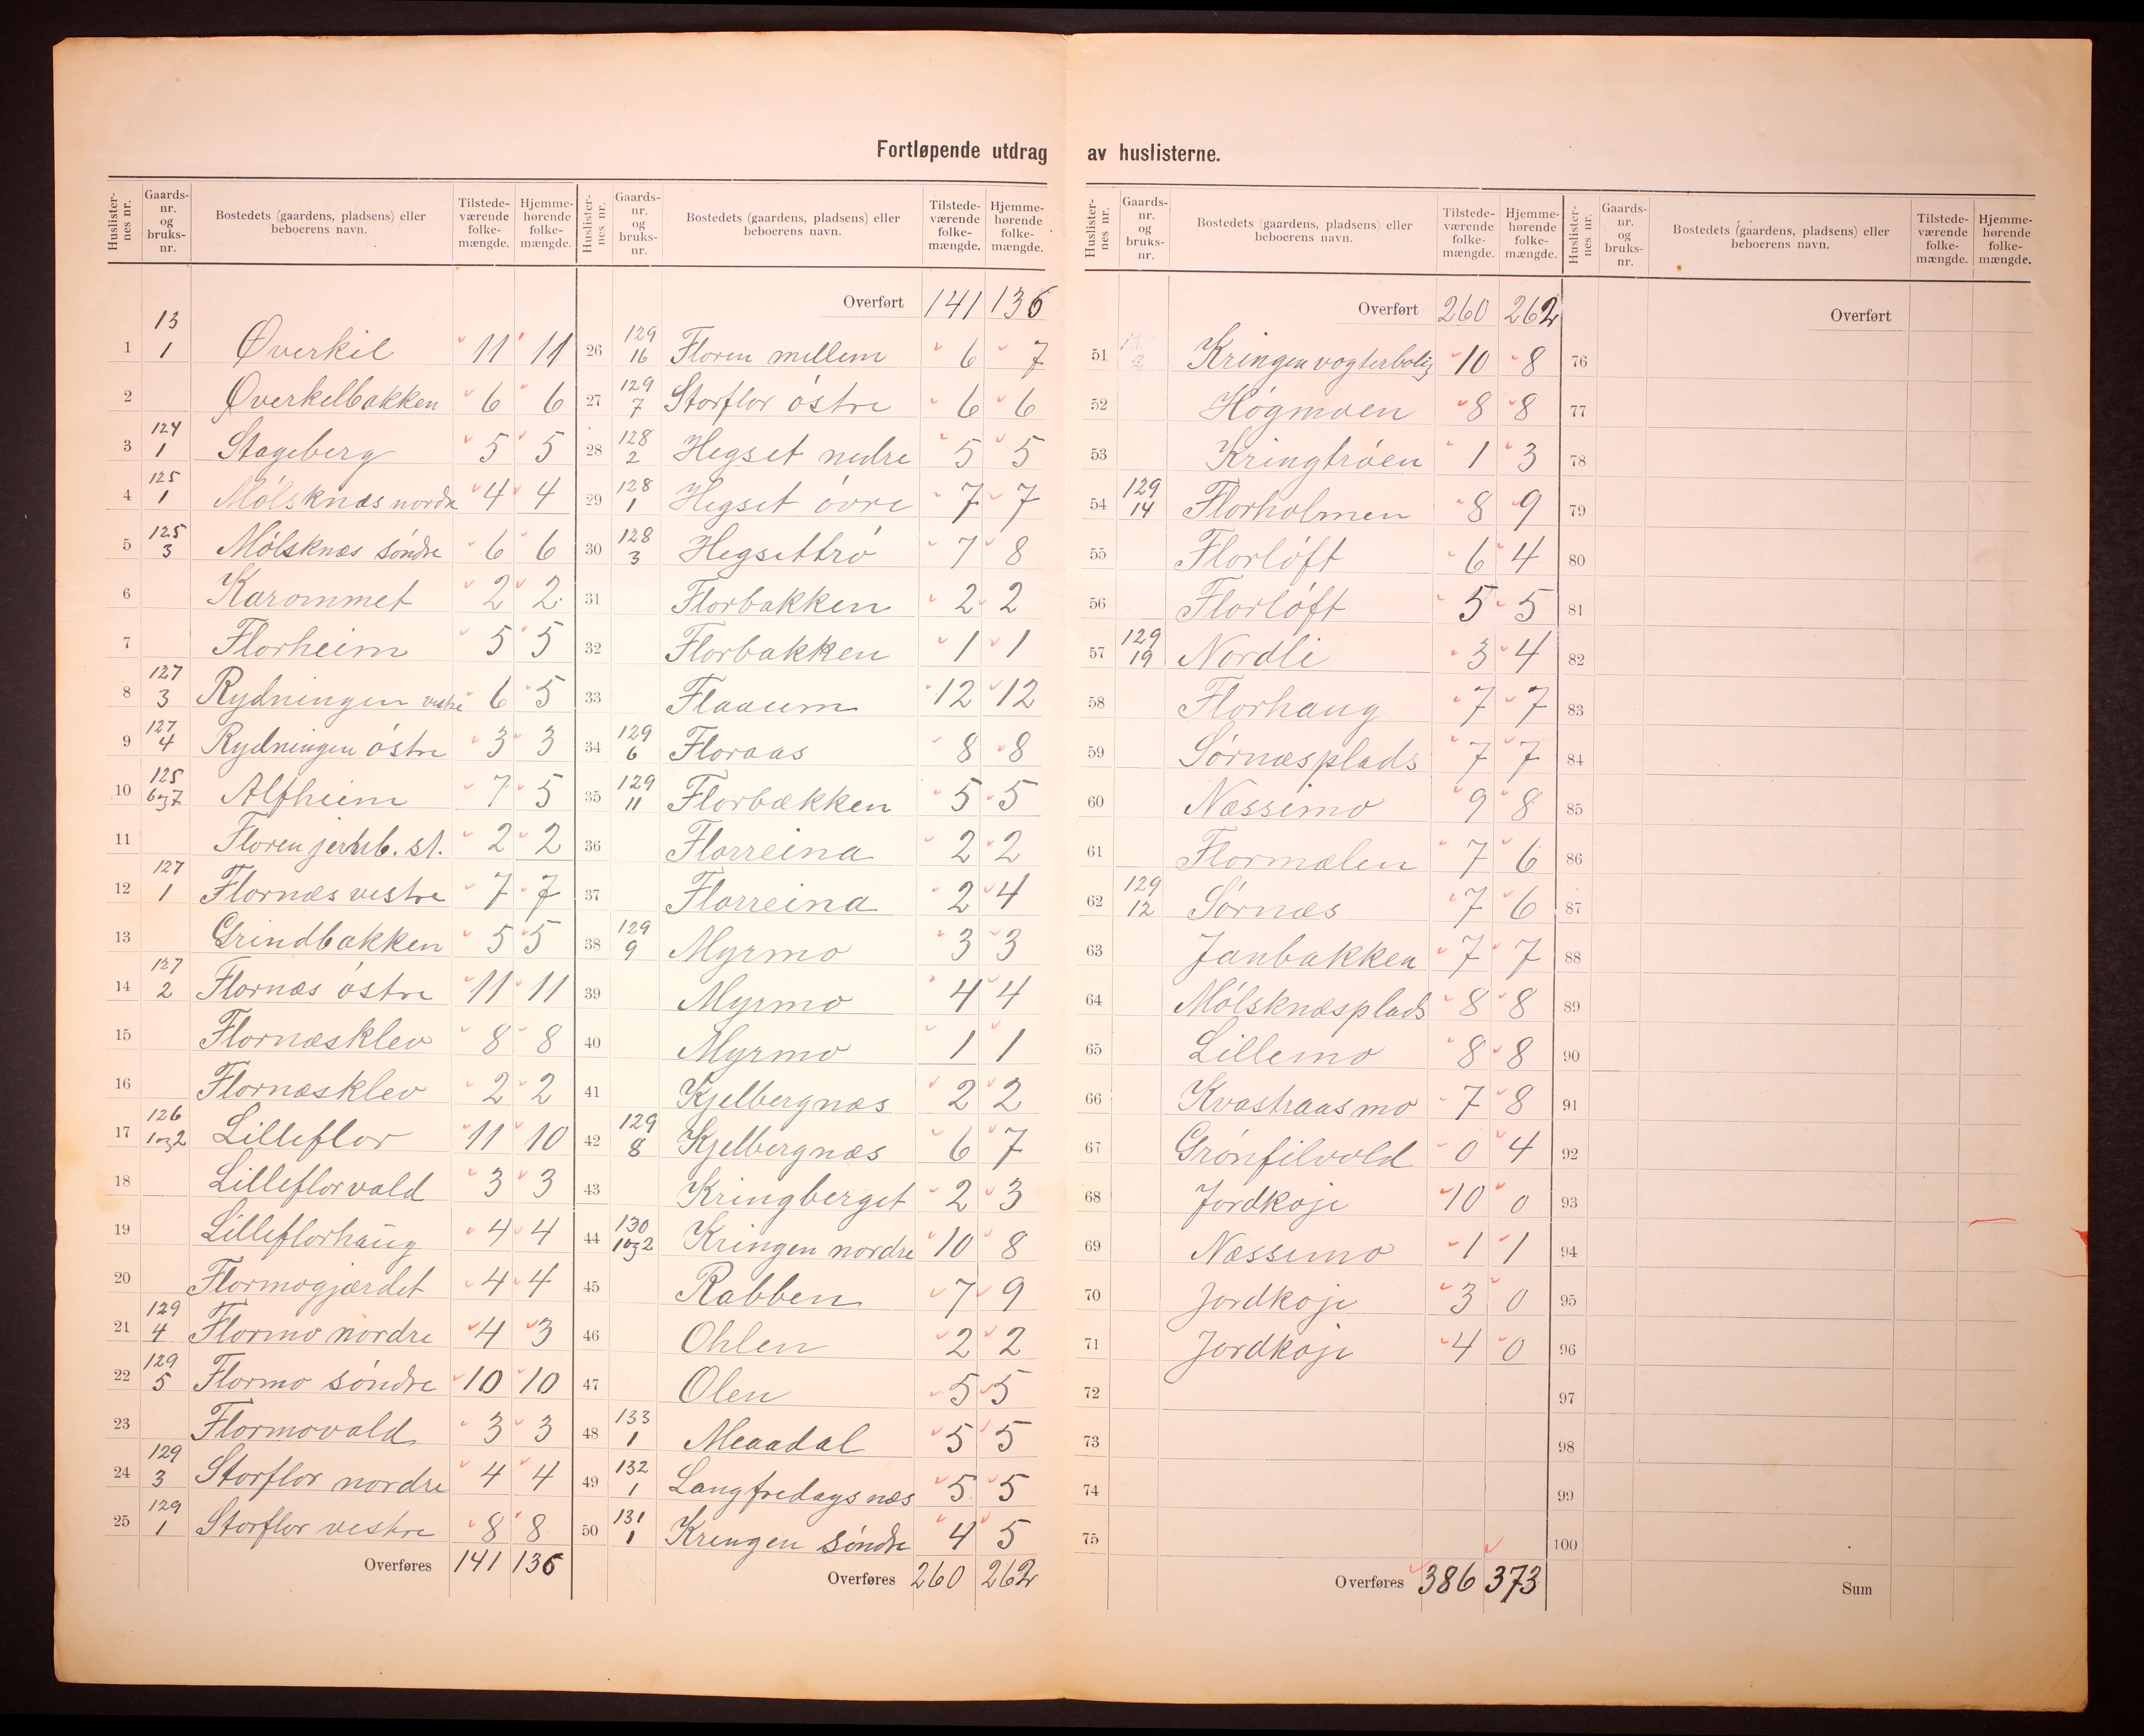 Fortløpende utdrag av huslisterne.
Huslister-nes nr. | Gaards-nr. og bruks-nr. | Bostedets (gaardens, pladsens) eller beboerens navn. | Tilstede-værende folke-mængde. | Hjemme-hørende folke-mængde.
1 13/1 Øverkil 11 11
2 Øverkelbakken 6 6
3 124/1 Stageberg 5 5
4 125/1 Mölsknæs nordre 4 4
5 125/3 Mölsknæs söndre 6 6
6 Karommet 2 2
7 Florheim 5 5
8 127/3 Rydningen vestre 6 5
9 127/4 Rydningen östre 3 3
10 125/6og7 Alfheim 7 5
11 Floren jernb. st. 2 2
12 127/1 Flornæs vestre 7 7
13 Grindbakken 5 5
14 127/2 Flornæs östre 11 11
15 Flornæsklev 8 8
16 Flornæsklev 2 2
17 126/1og2 Lilleflor 11 10
18 Lilleflorvald 3 3
19 Lilleflorhaug 4 4
20 Flormogjærdet 4 4
21 129/4 Flormo nordre 4 3
22 129/5 Flormo söndre 10 10
23 Flormovald 3 3
24 129/3 Storflor nordre 4 4
25 129/1 Storflor vestre 8 8
Overføres 141 136
Huslister-nes nr. | Gaards-nr. og bruks-nr. | Bostedets (gaardens, pladsens) eller beboerens navn. | Tilstede-værende folke-mængde. | Hjemme-hørende folke-mængde.
Overført 141 136
26 129/16 Floren mellem 6 7
27 129/7 Storflor östre 6 6
28 128/2 Hegset nedre 5 5
29 128/1 Hegset övre 7 7
30 128/3 Hegsettrö 7 8
31 Florbakken 2 2
32 Florbakken 1 1
33 Flaaum 12 12
34 129/6 Floraas 8 8
35 129/11 Florbækken 5 5
36 Florreina 2 2
37 Florreina 2 4
38 129/9 Myrmo 3 3
39 Myrmo 4 4
40 Myrmo 1 1
41 Kjelbergnæs 2 2
42 129/8 Kjelbergnæs 6 7
43 Kringberget 2 3
44 130/1og2 Kringen nordre 10 8
45 Rabben 7 9
46 Ohlen 2 2
47 Olen 5 5
48 133/1 Meaadal 5 5
49 132/1 Langfredagsnæs 5 5
50 131/1 Kringen söndre 4 5
Overføres 260 262
Huslister-nes nr. | Gaards-nr. og bruks-nr. | Bostedets (gaardens, pladsens) eller beboerens navn. | Tilstede-værende folke-mængde. | Hjemme-hørende folke-mængde.
Overført 260 262
51 Kringen vogterbolig 10 8
52 Högmoen 8 8
53 Kringtröen 1 3
54 129/14 Florholmen 8 9
55 Florlöft 6 4
56 Florlöft 5 5
57 129/19 Nordli 3 4
58 Florhaug 7 7
59 Sörnæsplads 7 7
60 Næssimo 9 8
61 Flormælen 7 6
62 129/12 Sörnæs 7 6
63 Janbakken 7 7
64 Mölsknæsplads 8 8
65 Lillemo 8 8
66 Kvastraasmo 7 8
67 Grönfilvold 0 4
68 Jordkoje 10 0
69 Næssimo 1 1
70 Jordkoje 3 0
71 Jordkoje 4 0
72
73
74
75
Overføres 386 373
Huslister-nes nr. | Gaards-nr. og bruks-nr. | Bostedets (gaardens, pladsens) eller beboerens navn. | Tilstede-værende folke-mængde. | Hjemme-hørende folke-mængde.
Overført
76
77
78
79
80
81
82
83
84
85
86
87
88
89
90
91
92
93
94
95
96
97
98
99
100
Sum